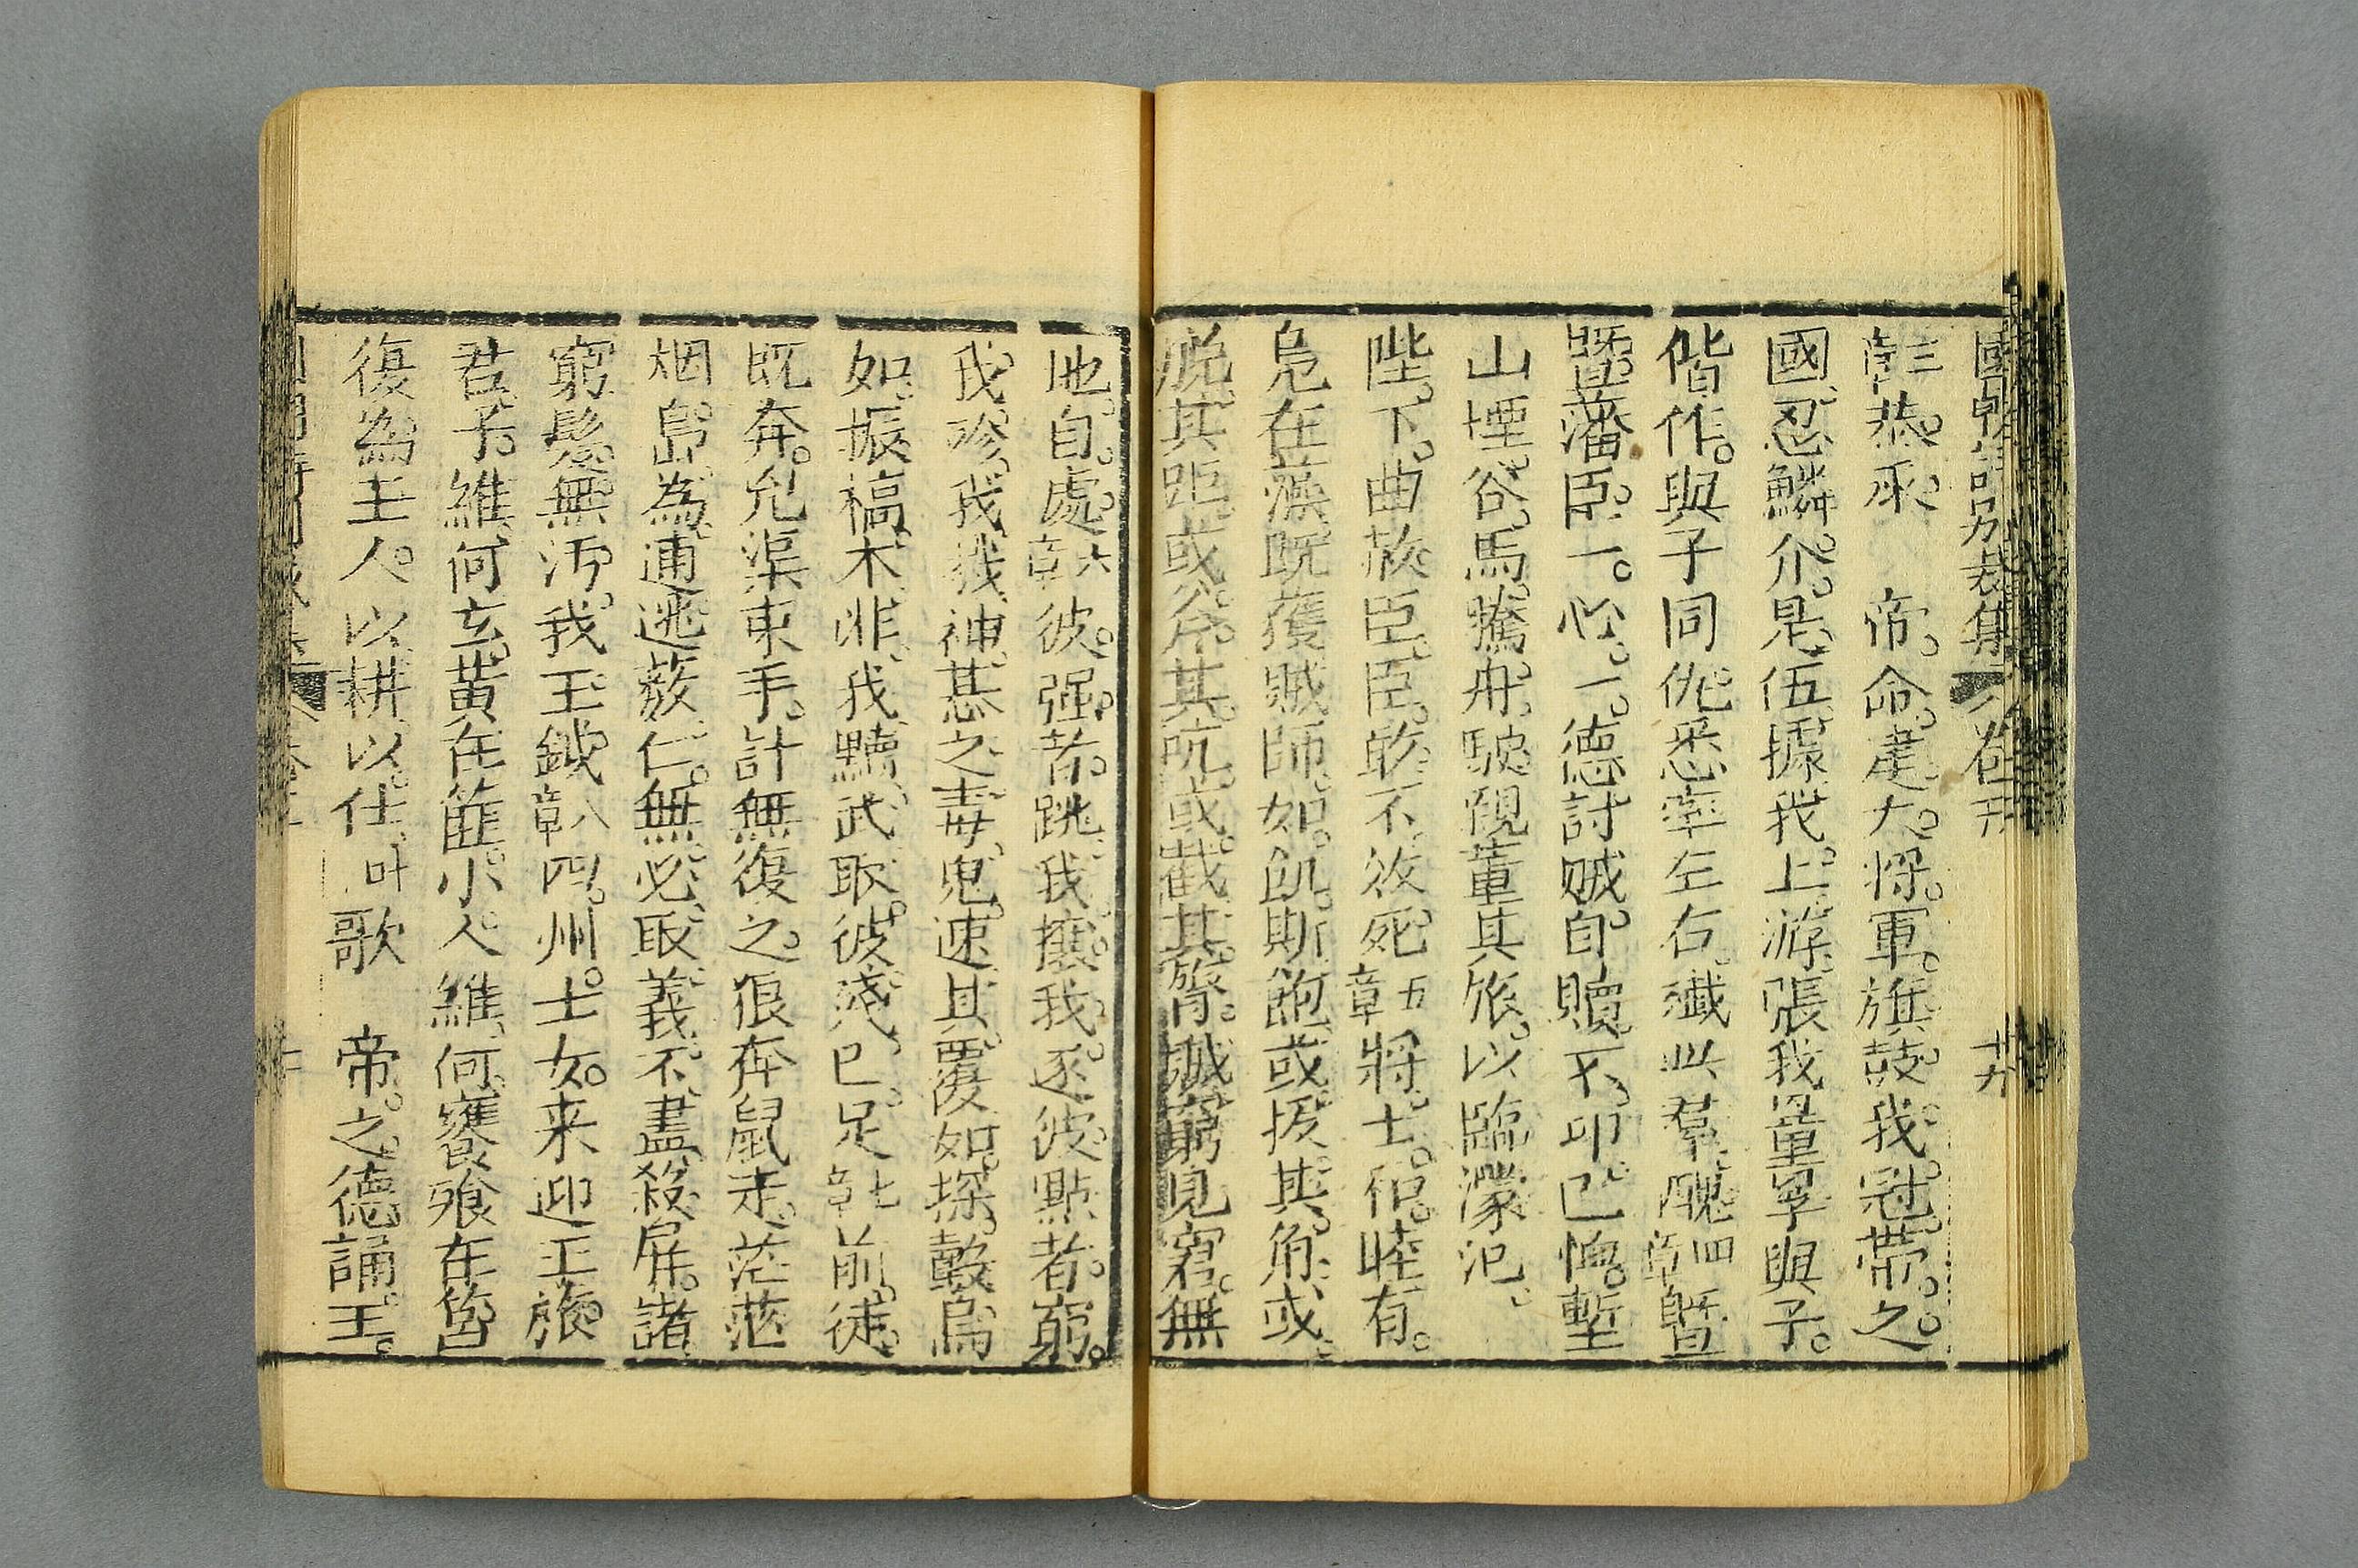 國朝詩別裁集 卷
三章恭承 帝命建大將軍旗鼓我冠帶之
國忍鱗介是伍據我上游張我量罕與子
偕作與子同仇悉率左右殲此羣醜四章暨
暨藩臣一心一德討賊自贖不卬已愧塹
山堙谷馬騰舟駾覬董其旅以臨濛汜
陛下曲赦臣臣敢不效死五章將士倌睦有
凫在藻既獲賊師如飢斯飽或掎其角或
脫其距或斧其吭或截其膂賊窮見窘無
地自處六章彼强者跳我攘我逐彼黠者窮
我殄我我神惎之毒鬼速其覆如探鷇烏
如振槁木非我黷武取彼殘已足七章前徒
既奔允渠束手計無復之狼奔鼠走茫茫
烟島為逋逃薮仁無必取義不盡殺屏諸
窮髮無汚我王鉞八章四州士女来迎王旅
君子維何玄黃在篚小人維何饔飱在筥
復為王人以耕以仕叶歌 帝之德誦王